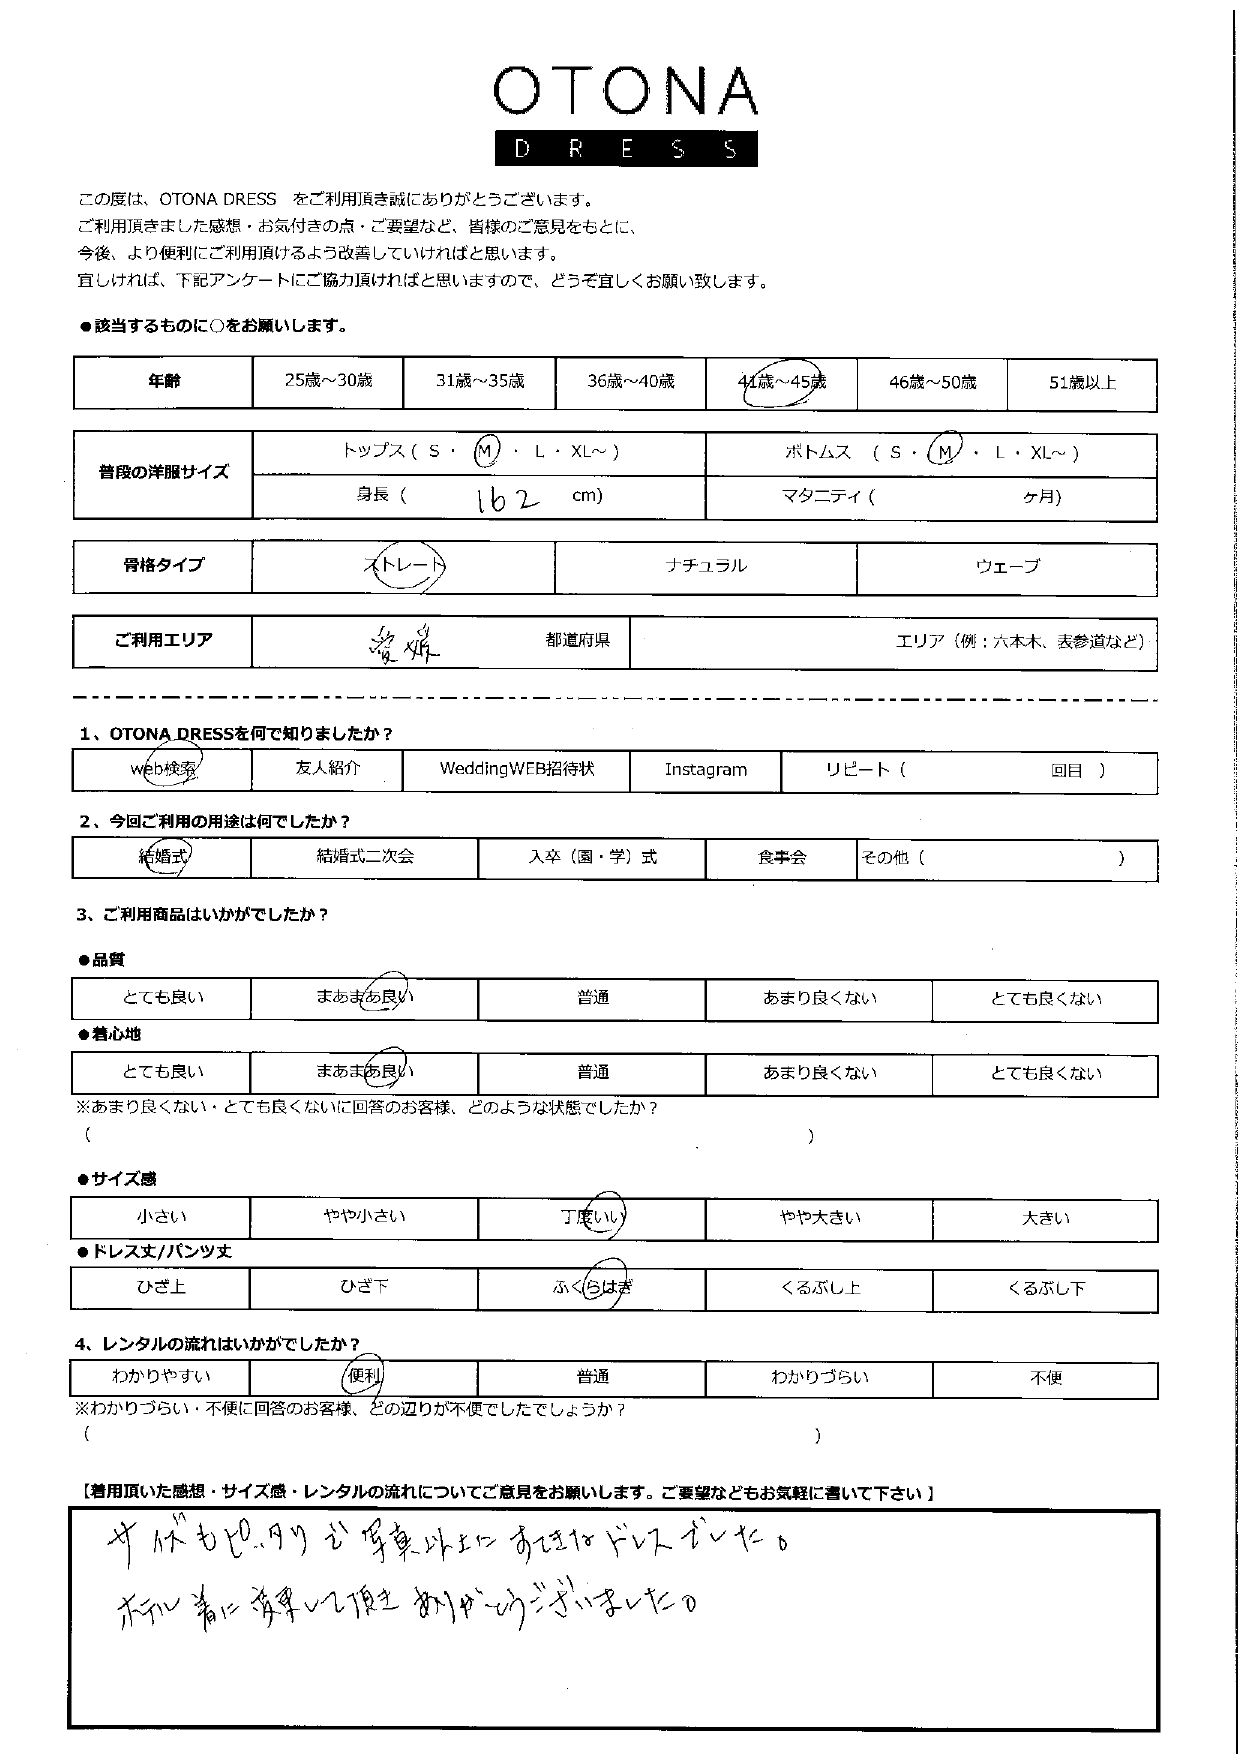 OTONA
DRESS
この度は、OTONA DRESS　をご利用頂き誠にありがとうございます。
ご利用頂きました感想・お気付きの点・ご要望など、皆様のご意見をもとに、
今後、より便利にご利用頂けるよう改善していければと思います。
宜しければ、下記アンケートにご協力頂ければと思いますので、どうぞ宜しくお願い致します。
●該当するものに○をお願いします。
年齢 25歳～30歳 31歳～35歳 36歳～40歳 41歳～45歳 46歳～50歳 51歳以上
普段の洋服サイズ トップス ( S ・ M ・ L ・ XL～ ) ボトムス ( S ・ M ・ L ・ XL～ )
身長 ( 162 cm) マタニティ ( ケ月)
骨格タイプ ストレート ナチュラル ウェーブ
ご利用エリア 愛媛 都道府県 エリア（例：六本木、表参道など）
1、OTONA DRESSを何で知りましたか？
web検索 友人紹介 WeddingWEB招待状 Instagram リピート ( 回目 )
2、今回ご利用の用途は何でしたか？
結婚式 結婚式二次会 入卒（園・学）式 食事会 その他 ( )
3、ご利用商品はいかがでしたか？
●品質
とても良い まあまあ良い 普通 あまり良くない とても良くない
●着心地
とても良い まあまあ良い 普通 あまり良くない とても良くない
※あまり良くない・とても良くないに回答のお客様、どのような状態でしたか？
( )
●サイズ感
小さい やや小さい 丁度いい やや大きい 大きい
●ドレス丈/パンツ丈
ひざ上 ひざ下 ふくらはぎ くるぶし上 くるぶし下
4、レンタルの流れはいかがでしたか？
わかりやすい 便利 普通 わかりづらい 不便
※わかりづらい・不便に回答のお客様、どの辺りが不便でしたでしょうか？
( )
【着用頂いた感想・サイズ感・レンタルの流れについてご意見をお願いします。ご要望などもお気軽に書いて下さい】
サイズもピッタリで写真以上にすてきなドレスでした。
ホテル着に変更して頂きありがとうございました。